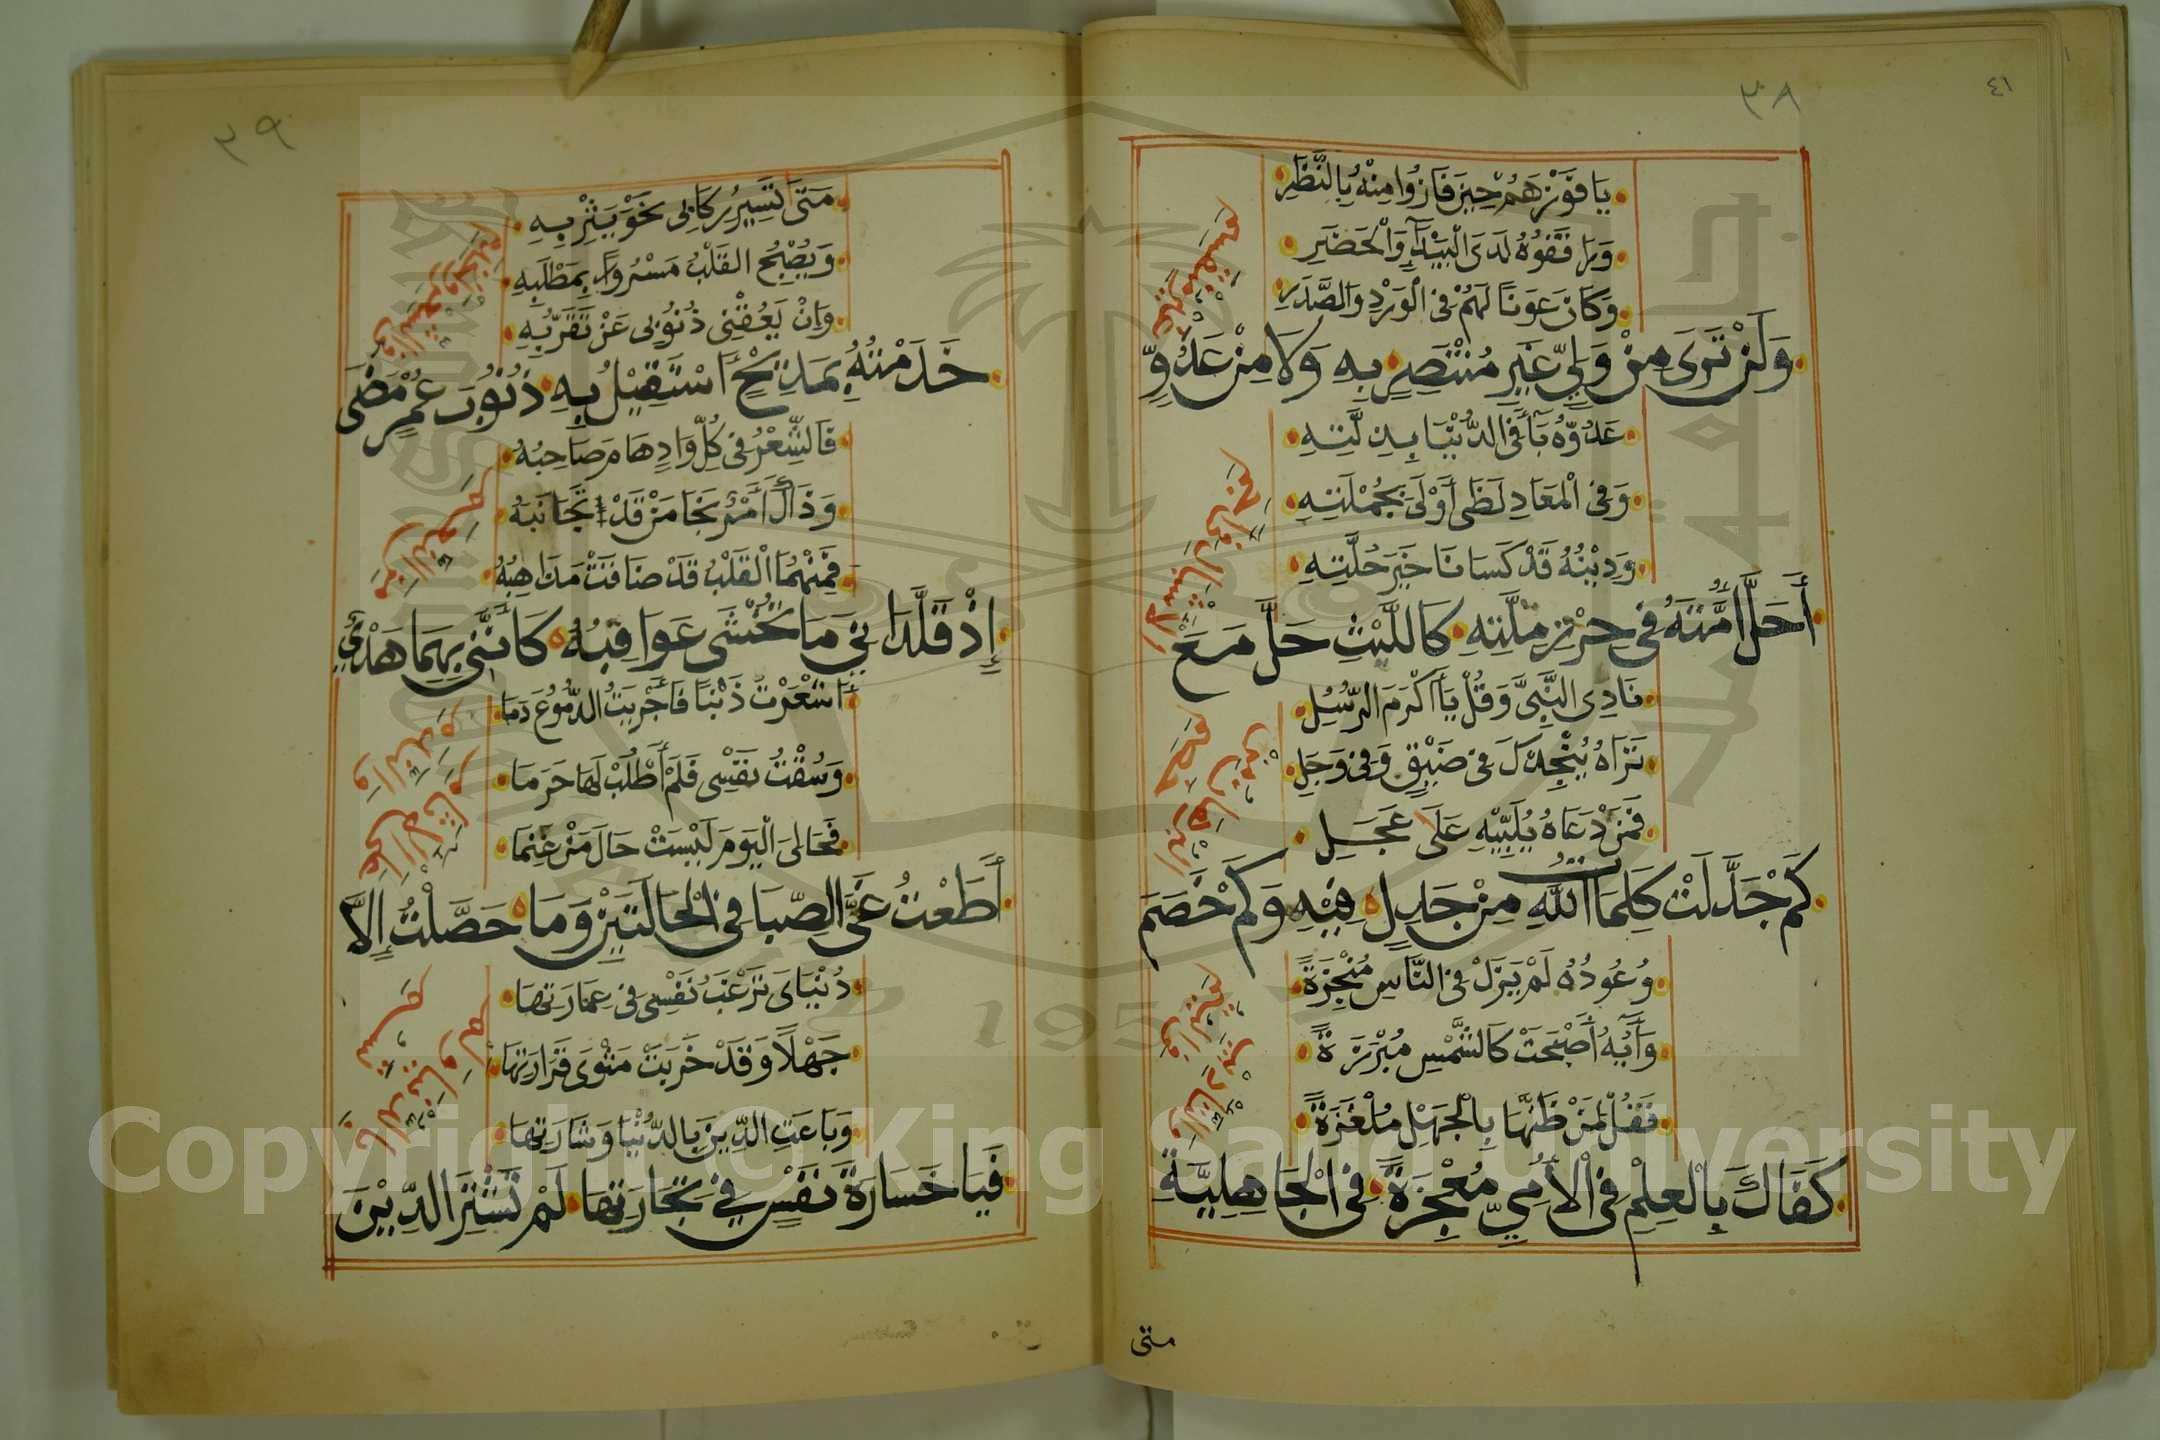 ٤١
٣٨
يَا فَوْزَهُمْ حِينَ فَازُوا مِنْهُ بِالنَّظَرِ
وَرَافَقُوهُ لَدَى الْبَيْدَآءِ وَالْحَضَرِ
وَكَانَ عَوْنًا لَهُمْ فِى الْوَرْدِ وَالصَّدَرِ
وَلَنْ تَرَى مِنْ وَلِيٍّ غَيْرِ مُنْتَصِرٍ بِهِ وَلَا مِنْ عَدُوٍّ
غَيْرِ مُنْقَصِمِ
عَدُوُّهُ بَآءَ فِى الدُّنْيَا بِذِلَّتِهِ
وَفِى الْمَعَادِ لَظَى أَوْلَى بِجُمْلَتِهِ
وَدِيْنُهُ قَدْ كَسَانَا خَيْرَ حُلَّتِهِ
أَحَلَّ أُمَّتَهُ فِى حِرْزِ مِلَّتِهِ كَاللَّيْثِ حَلَّ مَعَ
الْاَشْبَالِ فِى اَجَمِ
نَادِى النَّبِىَّ وَقُلْ يَآ أَكْرَمَ الرُّسُلِ
تَرَاهُ يُنْجِدُكَ فِى ضَيْقٍ وَفِى وَجَلِ
فَمَنْ دَعَاهُ يُلَبِّيْهِ عَلَى عَجَلِ
كَمْ جَدَّلَتْ كَلِمَاتُ اللّٰهِ مِنْ جَدِلٍ فِيْهِ وَكَمْ خَصَمَ
الْبُرْهَانُ مِنْ خَصِمِ
وُعُودُهُ لَمْ يَزَلْ فِى النَّاسِ مُنْجِزَةً
وَآيُهُ أَصْبَحَتْ كَالشَّمْسِ مُبْرَزَةً
فَقُلْ لِمَنْ ظَنَّهَا بِالْجَهْلِ مُلْغَزَةً
كَفَاكَ بِالْعِلْمِ فِى الْأُمِيِّ مُعْجِزَةً فِى الْجَاهِلِيَّةِ
وَالتَّادِيْبِ فِى الْيُتُمِ
متى
٣٩
مَتَى تَسِيرُ رِكَابِى نَحْوَ يَثْرِبِهِ
وَيُصْبِحُ الْقَلْبُ مَسْرُورًا بِمَطْلَبِهِ
وَاِنْ يَعُقْنِى ذُنُوبِى عَنْ تَقَرُّبِهِ
خَدَمْتُهُ بِمَدِيْحٍ أَسْتَقِيْلُ بِهِ ذُنُوْبَ عُمْرٍ مَضَى
فِى الشِّعْرِ وَالْخِدَمِ
فَالشِّعْرُ فِى كُلِّ وَادٍ هَامَ صَاحِبُهُ
وَذَا لَ أَمْرٌ نَجَا مَنْ قَدْ تَجَانَبَهُ
فَمِنْهُمَا الْقَلْبُ قَدْ ضَاقَتْ مَذَاهِبُهُ
إِذْ قَلَّدَانِيَ مَا تُخْشَى عَوَاقِبُهُ كَأَنَّنِى بِهِمَا هَدْيٌ
مِنَ النَّعَمِ
أَسْتَعْرْتُ ذَنْبًا فَأَجْرَيْتُ الدُّمُوْعَ دَمَا
وَسُقْتُ نَفْسِى فَلَمْ أَطْلُبْ لَهَا حَرَمَا
فَحَالِىَ الْيَوْمَ لَيْسَتْ حَالَ مَنْ غَنِمَا
أَطَعْتُ غَىَّ الصِّبَا فِى الْحَالَتَيْنِ وَمَا حَصَّلْتُ إِلَّا
عَلَى الْاٰثَامِ وَالنَّدَمِ
دُنْيَاىَ تَرْغَبُ نَفْسِى فِى عِمَارَتِهَا
جَهْلًا وَقَدْ خَرِبَتْ مَثْوَى قَرَارَتِهَا
وَبَاعَتِ الدِّيْنَ بِالدُّنْيَا وَشَارَتِهَا
فَيَا خَسَارَةَ نَفْسٍ فِي تِجَارَتِهَا لَمْ تَشْتَرِ الدِّيْنَ
بِالدُّنْيَا وَلَمْ تَسُمِ
Copyright © King Saud University
1957